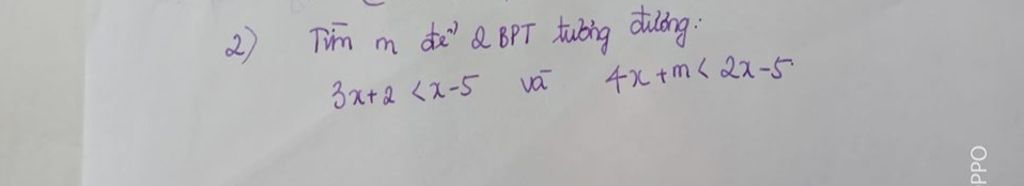 2) Tìm m để 2 BPT tương đương:
3x+2 < x-5 và 4x+m < 2x-5
PPO